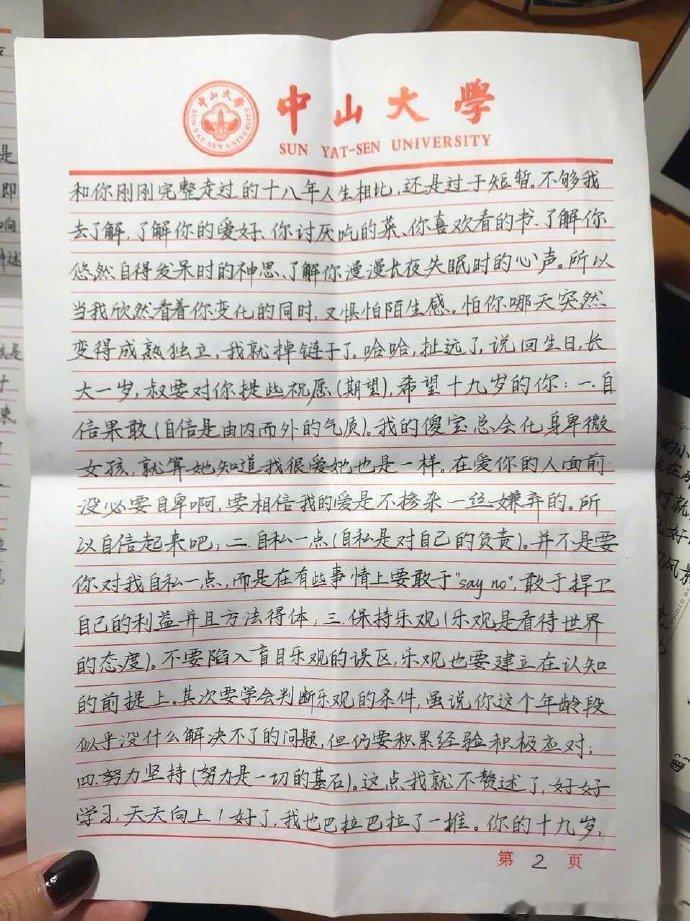 中山大學
SUN YAT-SEN UNIVERSITY
和你刚刚完整走过的十八年人生相比,还是过于短暂。不够我
去了解,了解你的爱好、你讨厌吃的菜、你喜欢看的书、了解你
悠然自得发呆时的神思、了解你漫漫长夜失眠时的心声。所以
当我欣然看着你变化的同时,又惧怕陌生感。怕你哪天突然
变得成熟独立,我就掉链子了。哈哈,扯远了,说回生日,长
大一岁,叔要对你提些祝愿(期望),希望十九岁的你:一.自
信果敢(自信是由内而外的气质)。我的傻宝总会化身卑微
女孩,就算她知道我很爱她也是一样。在爱你的人面前
没必要自卑啊,要相信我的爱是不掺杂一丝嫌弃的。所
以自信起来吧;二.自私一点(自私是对自己的负责)。并不是要
你对我自私一点,而是在有些事情上要敢于"say no",敢于捍卫
自己的利益并且方法得体;三.保持乐观(乐观是看待世界
的态度)。不要陷入盲目乐观的误区,乐观也要建立在认知
的前提上。其次要学会判断乐观的条件,虽说你这个年龄段
似乎没什么解决不了的问题,但仍要积累经验积极应对;
四.努力坚持(努力是一切的基石)。这点我就不赘述了,好好
学习,天天向上!好了,我也巴拉巴拉了一堆。你的十九岁,
第 2 页